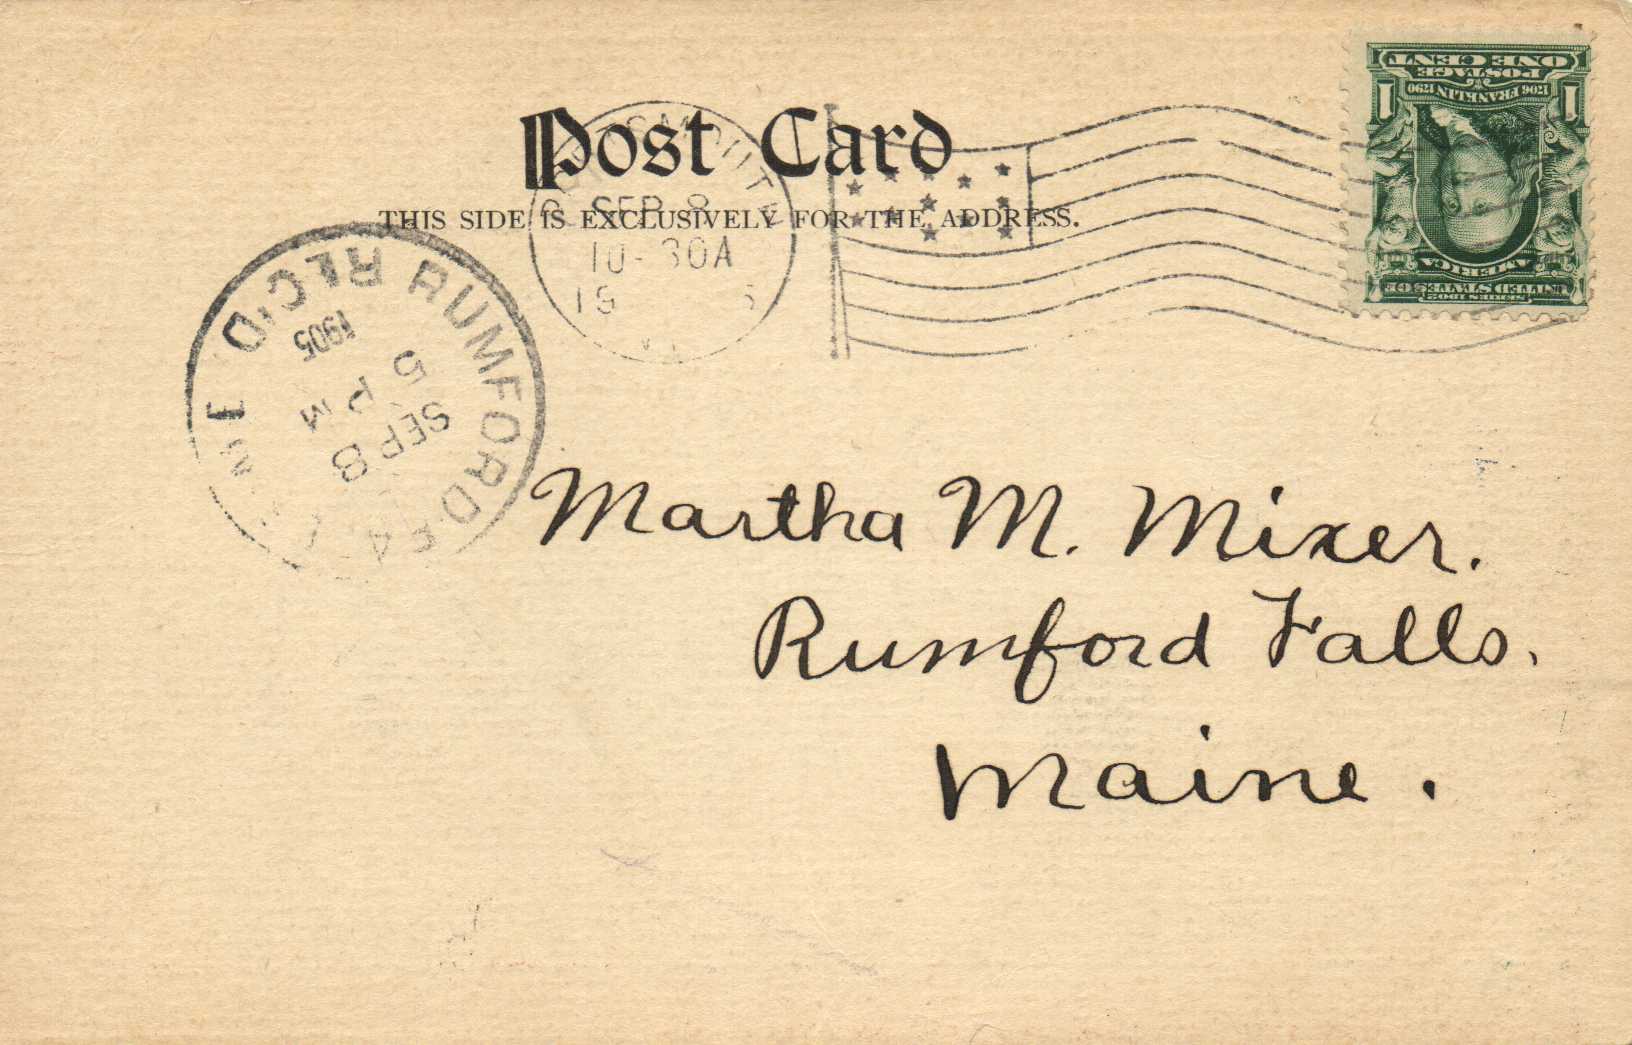 Post Card
THIS SIDE IS EXCLUSIVELY FOR THE ADDRESS.
SEP 8
10-30A
RUMFORD FA
REC'D
1905
5 PM
SEP 8
ONE CENT
POSTAGE
1 1
1706 FRANKLIN 1790
UNITED STATES OF
AMERICA
SERIES 1902
Martha M. Mixer.
Rumford Falls.
Maine.